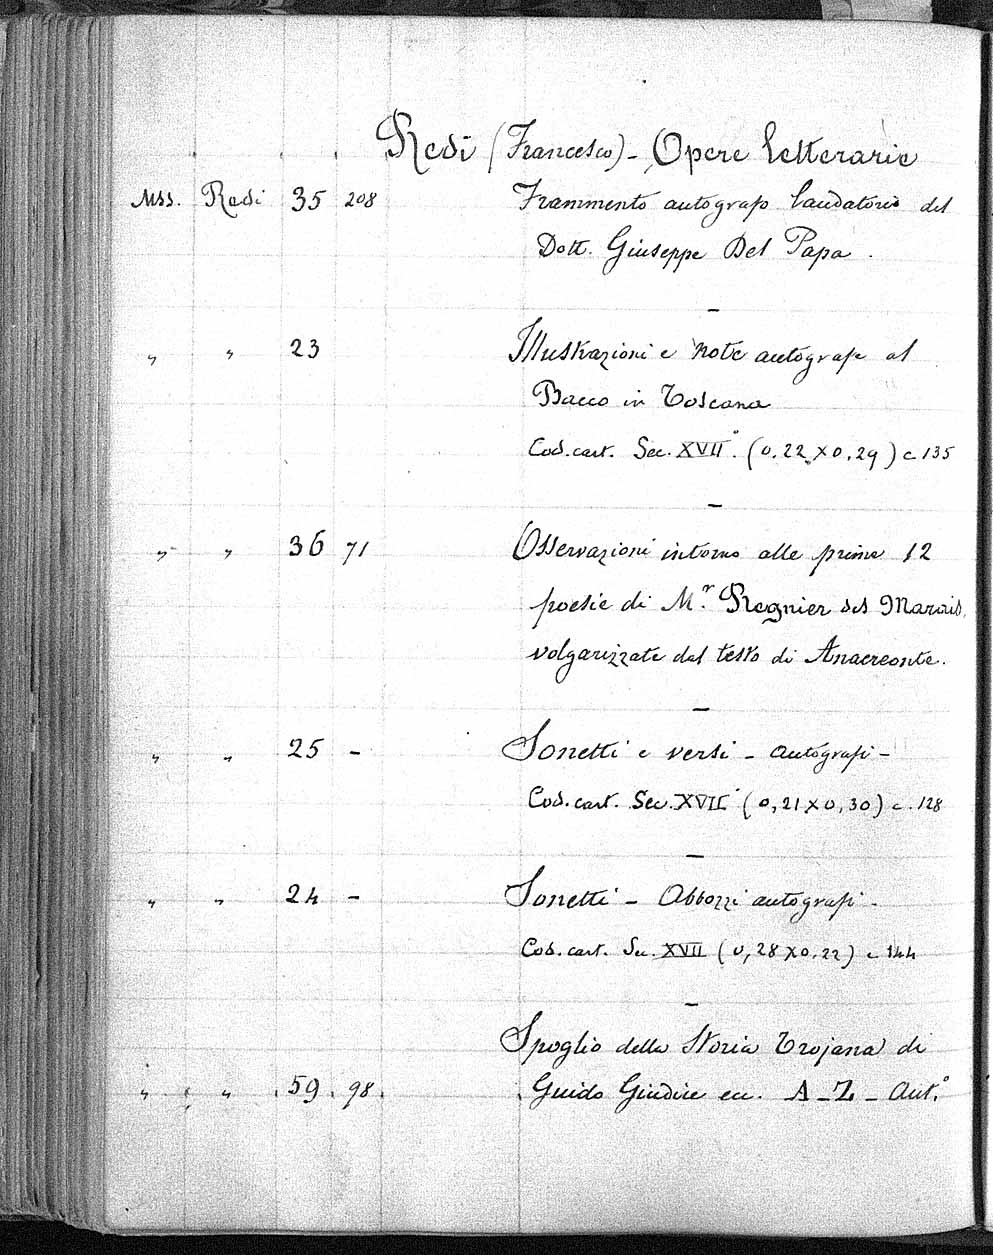 Redi (Francesco) - Opere letterarie
Mss. Redi 35 208 Frammento autografo laudatorio del
Dott. Giuseppe Del Papa.
" " 23 Illustrazioni e note autografe al
Bacco in Toscana
Cod. cart. Sec. XVII°. (0.22 X 0,29) c 135
" " 36 71 Osservazioni intorno alle prime 12
poesie di M.r Regnier des Marais,
volgarizzate dal testo di Anacreonte.
" " 25 - Sonetti e versi - autografi -
Cod. cart. Sec. XVII (0,21 X 0,30) c. 128
" " 24 - Sonetti - Abbozzi autografi -
Cod. cart. Sec. XVII (0,28 X 0.22) c 144
Spoglio della Storia Trojana di
" " 59 98 Guido Giudice ecc. A-Z - Aut.°